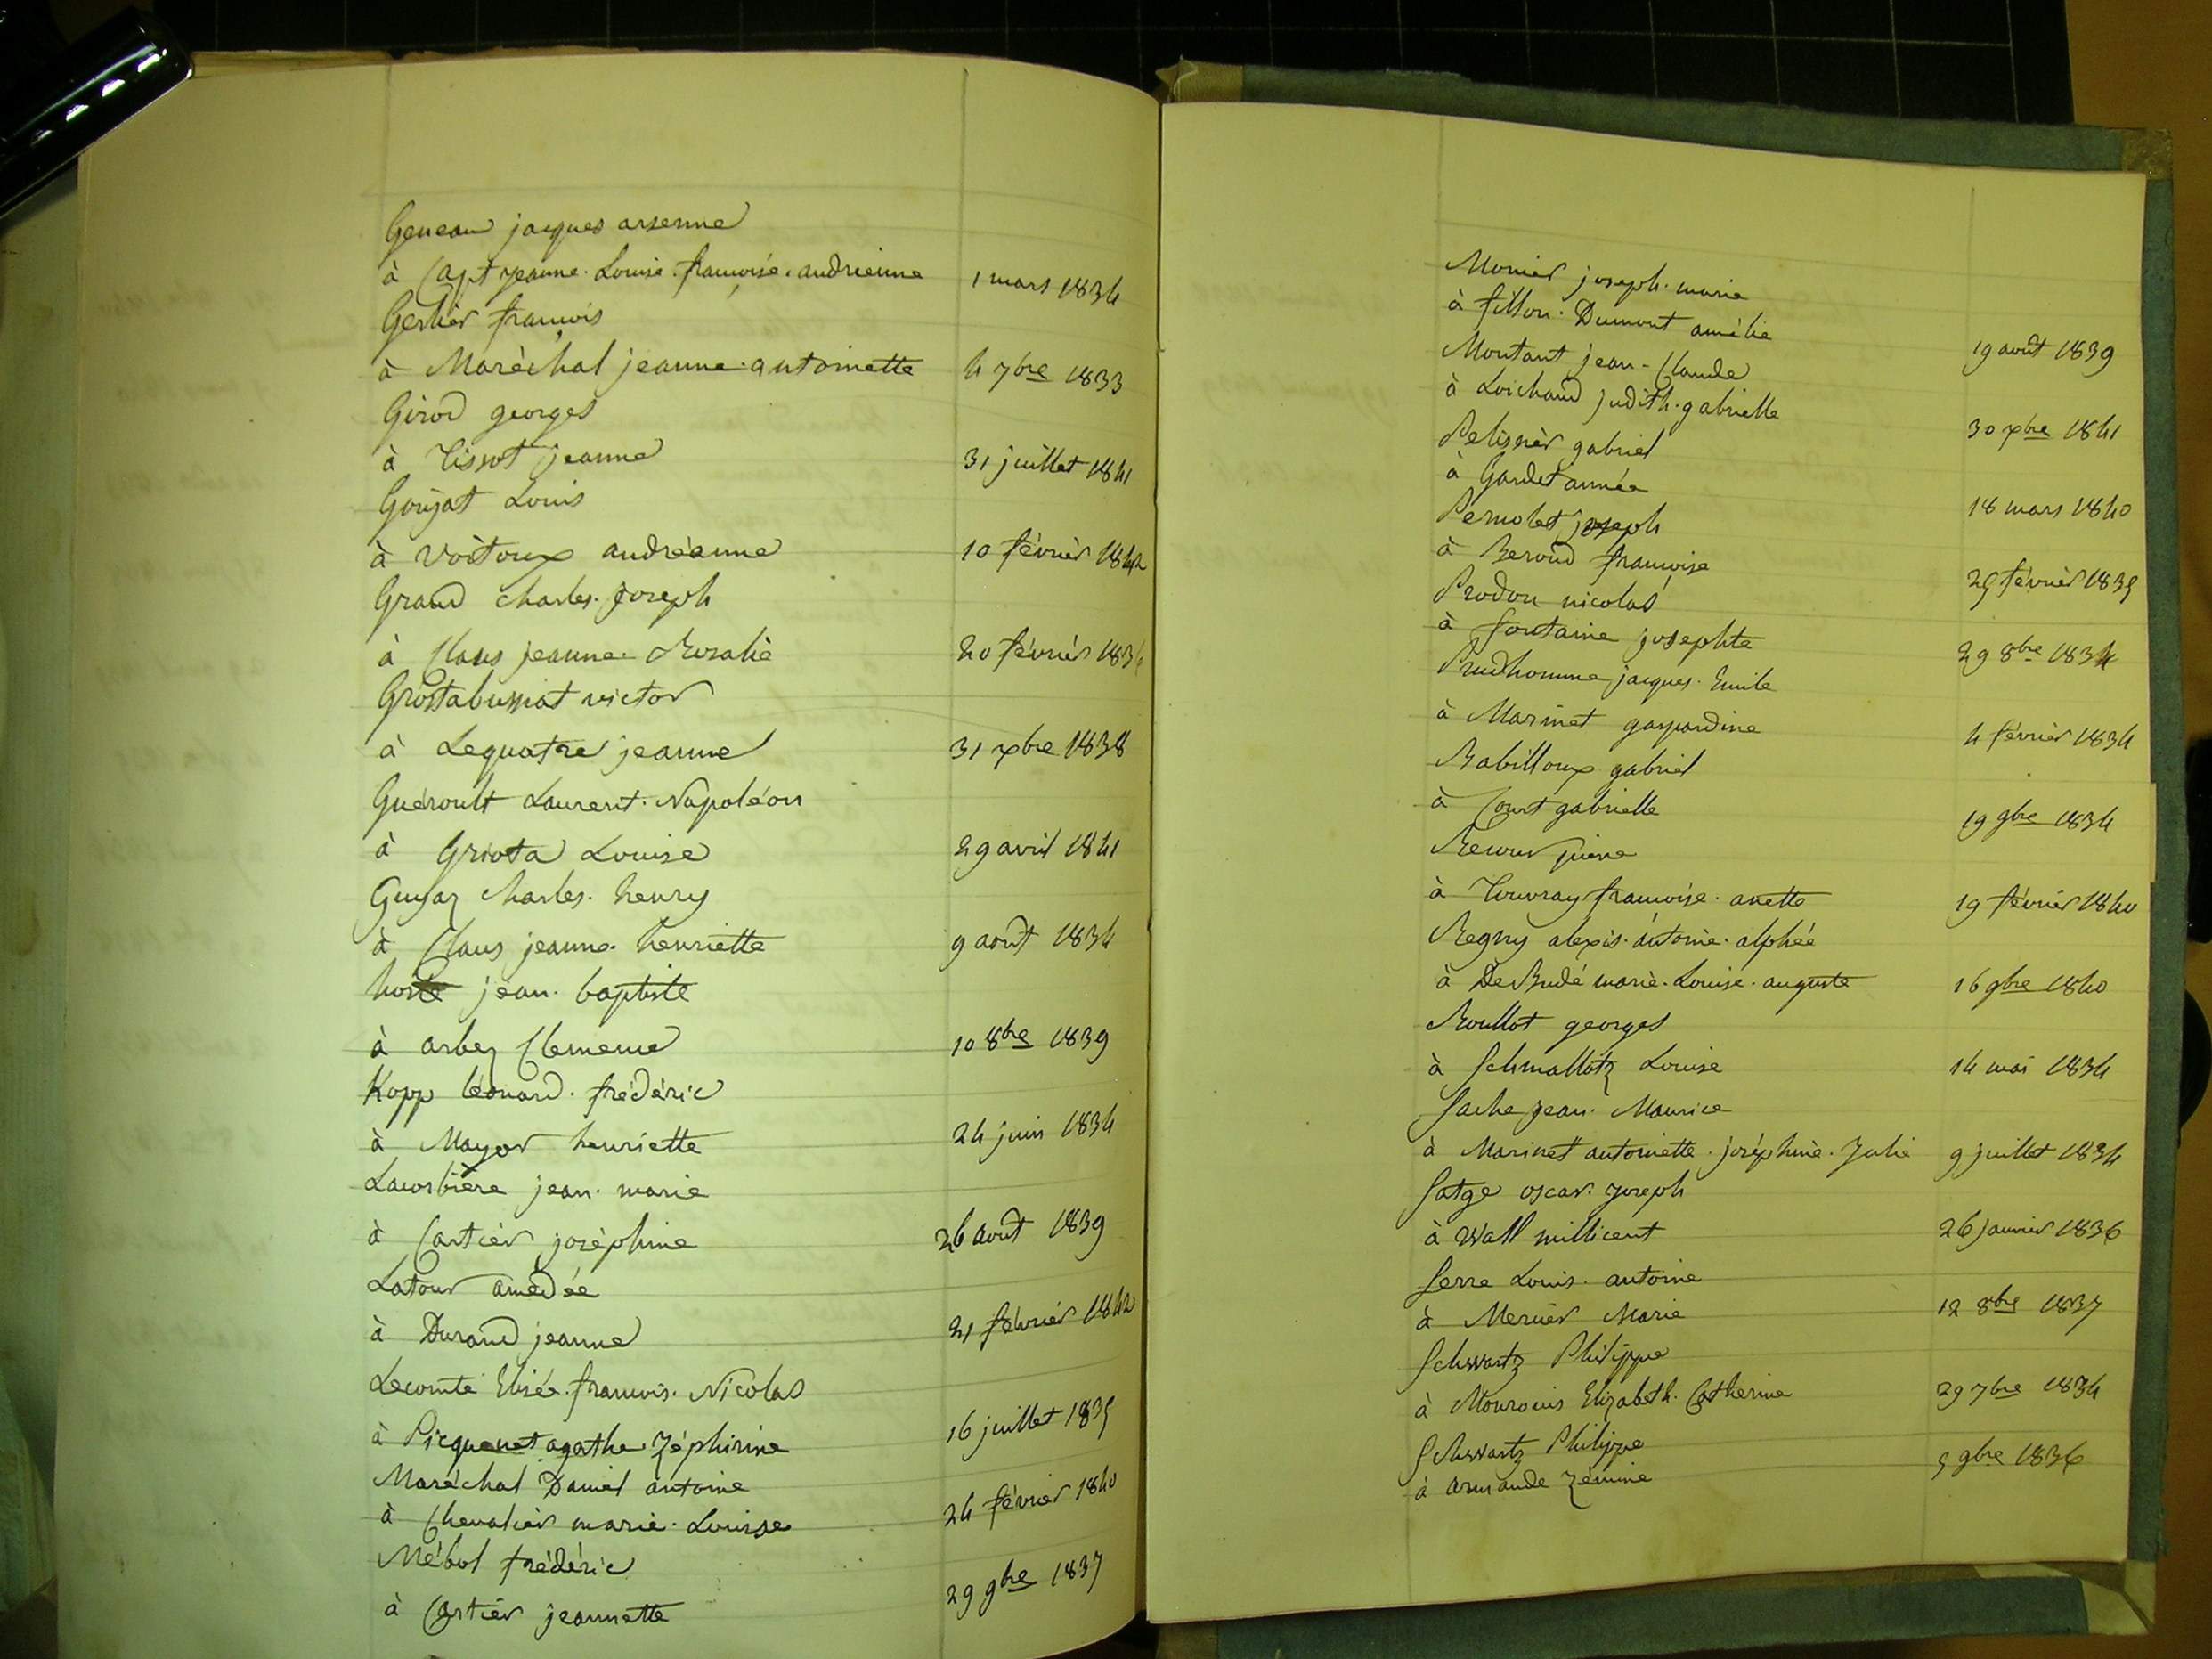 Geneau jacques arsenne
à Capt jeanne. Louise. françoise. andrienne 1 mars 1834
Gerlier françois
à Maréchal jeanne. antoinette 4 7bre 1833
Girod georges
à Tissot jeanne 31 juillet 1841
Goujat Louis
à Voitoux andréanne 10 février 1842
Grand charles. joseph
à Claus jeanne. Rosalie 20 février 183
Grostabussiat victor
à Lequatre jeanne 31 xbre 1838
Guéroult Laurent. Napoléon
à Griota Louise 29 avril 1841
Guyaz charles. henry
à Claus jeanne. henriette 9 août 1834
jean. baptiste
à arbez Clemence 10 8bre 1839
Kopp léonard. frédéric
à Mayor henriette 24 juin 1834
Lacorbière jean. marie
à Cartier joséphine 26 août 1839
Latour amédée
à Durand jeanne 21 février 1842
Lecomte Elisée. françois. Nicolas
à Picquenet agathe. Zéphirine 16 juillet 1835
Maréchal Daniel antoine
à Chevalier marie. Louise 24 février 1840
Mébol frédéric
à Cartier jeannette 29 9bre 1837
Monier joseph. marie
à fillon. Dumont amélie 19 août 1839
Montant jean. Claude
à Loichaud judith. gabrielle 30 xbre 1841
Pelissier gabriel
à Gardet année 18 mars 1840
Pernolet joseph
à Beroud françoise 25 février 1835
Prodon nicolas
à fontaine josephte 29 8bre 1834
Prudhomme jacques. Emile
à Marinet gaspardine 4 février 1834
Rabilloux gabriel
à Court gabrielle 19 9bre 1834
Recour pierre
à Touvray françoise. anette 19 février 1840
Regny alexis. antoine. alphée
à De Budé marie. Louise. auguste 16 9bre 1840
Roullot georges
à Schmallotz Louise 14 mai 1834
Sache jean. Maurice
à Marinet antoinette. joséphine. Julie 9 juillet 1834
Satge oscar. joseph
à Wall millicent 26 janvier 1836
Serre Louis. antoine
à Mercier Marie 12 8bre 1837
Schwartz Philippe
à Mourouis Elizabeth. Catherine 29 7bre 1834
Schwartz Philippe
à armande Zémine 5 9bre 1836